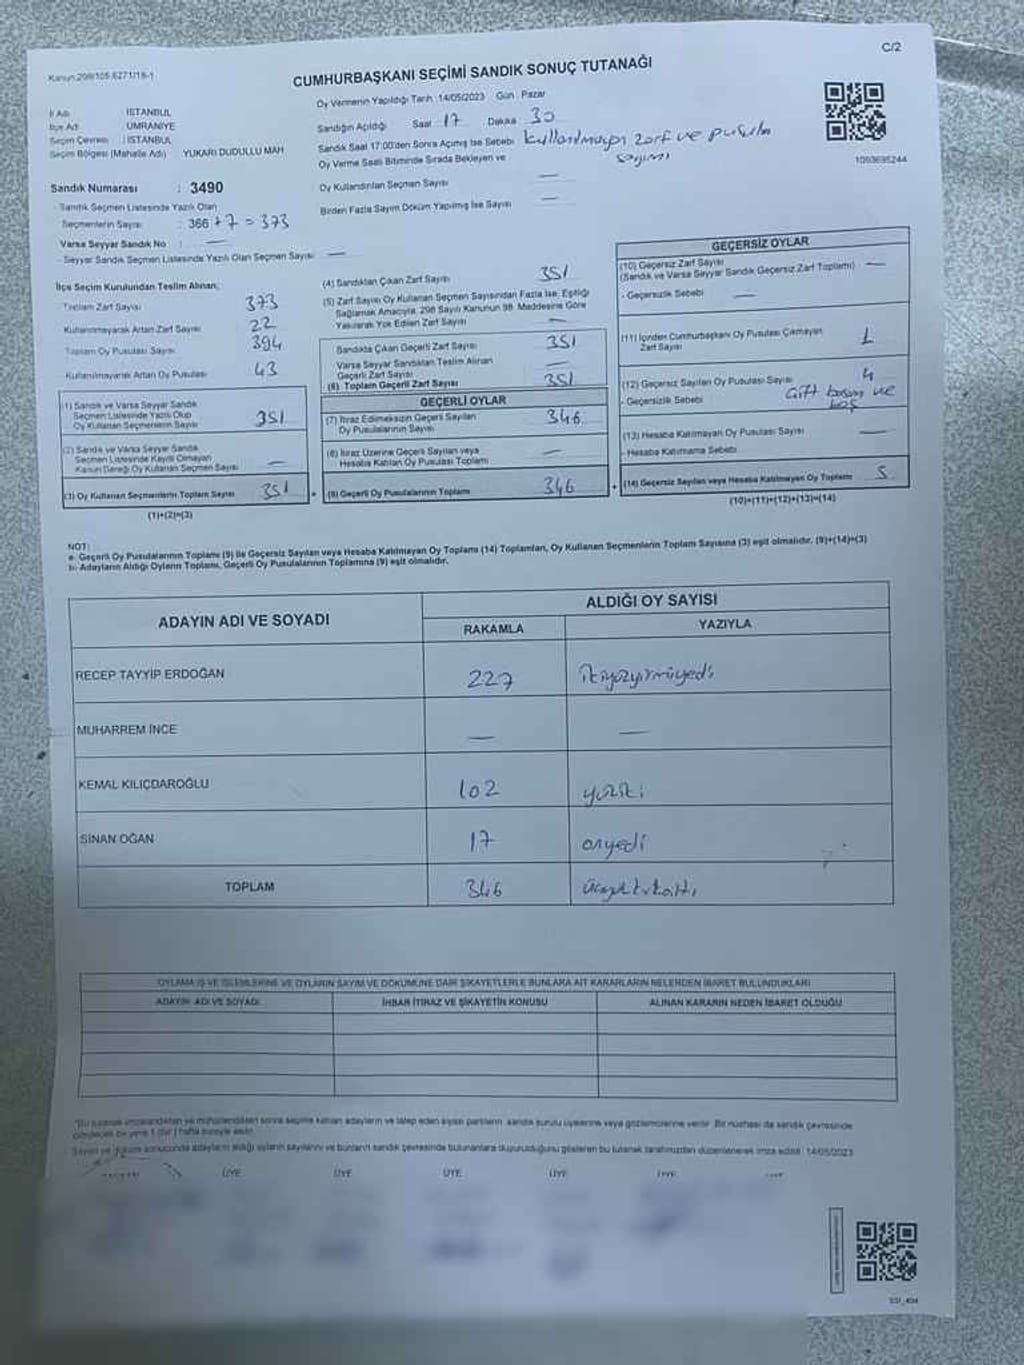 C/2
Kanun:298/105-6271/18-1
CUMHURBAŞKANI SEÇİMİ SANDIK SONUÇ TUTANAĞI
Oy Vermenin Yapıldığı Tarih: 14/05/2023 Gün : Pazar
İl Adı : İSTANBUL
İlçe Adı : ÜMRANİYE
Seçim Çevresi : İSTANBUL
Seçim Bölgesi (Mahalle Adı) YUKARI DUDULLU MAH
Sandığın Açıldığı Saat 17 Dakika 30
Sandık Saat 17:00'den Sonra Açımış İse Sebebi kullanılmayan zarf ve pusula sayımı
Oy Verme Saati Bitiminde Sırada Bekleyen ve
Oy Kullandırılan Seçmen Sayısı —
Birden Fazla Sayım Döküm Yapılmış İse Sayısı —
1093695244
Sandık Numarası : 3490
Sandık Seçmen Listesinde Yazılı Olan
Seçmenlerin Sayısı : 366 + 7 = 373
Varsa Seyyar Sandık No : —
Seyyar Sandık Seçmen Listesinde Yazılı Olan Seçmen Sayısı: —
İlçe Seçim Kurulundan Teslim Alınan;
Toplam Zarf Sayısı 373
Kullanılmayarak Artan Zarf Sayısı 22
Toplam Oy Pusulası Sayısı 394
Kullanılmayarak Artan Oy Pusulası 43
(1) Sandık ve Varsa Seyyar Sandık
Seçmen Listesinde Yazılı Olup
Oy Kullanan Seçmenlerin Sayısı 351
(2) Sandık ve Varsa Seyyar Sandık
Seçmen Listesinde Kayıtlı Olmayan
Kanun Gereği Oy Kullanan Seçmen Sayısı —
(3) Oy Kullanan Seçmenlerin Toplam Sayısı 351
(1)+(2)=(3)
(4) Sandıktan Çıkan Zarf Sayısı 351
(5) Zarf Sayısı Oy Kullanan Seçmen Sayısından Fazla İse, Eşitliği
Sağlamak Amacıyla, 298 Sayılı Kanunun 98. Maddesine Göre
Yakılarak Yok Edilen Zarf Sayısı —
Sandıkta Çıkan Geçerli Zarf Sayısı 351
Varsa Seyyar Sandıktan Teslim Alınan
Geçerli Zarf Sayısı —
(6) Toplam Geçerli Zarf Sayısı 351
GEÇERLİ OYLAR
(7) İtiraz Edilmeksizin Geçerli Sayılan
Oy Pusulalarının Sayısı 346
(8) İtiraz Üzerine Geçerli Sayılan veya
Hesaba Katılan Oy Pusulası Toplamı —
= (9) Geçerli Oy Pusulalarının Toplamı 346
GEÇERSİZ OYLAR
(10) Geçersiz Zarf Sayısı
(Sandık ve Varsa Seyyar Sandık Geçersiz Zarf Toplamı) —
- Geçersizlik Sebebi —
(11) İçinden Cumhurbaşkanı Oy Pusulası Çıkmayan
Zarf Sayısı 1
(12) Geçersiz Sayılan Oy Pusulası Sayısı 4
- Geçersizlik Sebebi Çift basım ve boş
(13) Hesaba Katılmayan Oy Pusulası Sayısı —
- Hesaba Katılmama Sebebi
+ (14) Geçersiz Sayılan veya Hesaba Katılmayan Oy Toplamı 5
(10)+(11)+(12)+(13)=(14)
NOT:
a- Geçerli Oy Pusulalarının Toplamı (9) ile Geçersiz Sayılan veya Hesaba Katılmayan Oy Toplamı (14) Toplamları, Oy Kullanan Seçmenlerin Toplam Sayısına (3) eşit olmalıdır. (9)+(14)=(3)
b- Adayların Aldığı Oyların Toplamı, Geçerli Oy Pusulalarının Toplamına (9) eşit olmalıdır.
ADAYIN ADI VE SOYADI ALDIĞI OY SAYISI
RAKAMLA YAZIYLA
RECEP TAYYİP ERDOĞAN 227 ikiyüzyirmiyedi
MUHARREM İNCE — —
KEMAL KILIÇDAROĞLU 102 yüziki
SİNAN OĞAN 17 onyedi
TOPLAM 346 üçyüzkırkaltı
OYLAMA İŞ VE İŞLEMLERİNE VE OYLARIN SAYIM VE DÖKÜMÜNE DAİR ŞİKAYETLERLE BUNLARA AİT KARARLARIN NELERDEN İBARET BULUNDUKLARI
ADAYIN ADI VE SOYADI İHBAR İTİRAZ VE ŞİKAYETİN KONUSU ALINAN KARARIN NEDEN İBARET OLDUĞU
"Bu tutanak imzalandıktan ve mühürlendikten sonra seçime katılan adayların ve talep eden siyasi partilerin sandık kurulu üyelerine veya gözlemcilerine verilir. Bir nüshası da sandık çevresinde
görülecek bir yere 1 (bir) hafta süreyle asılır.
Sayım ve döküm sonucunda adayların aldığı oyların sayılarını ve bunların sandık çevresinde bulunanlara duyurulduğunu gösteren bu tutanak tarafımızdan düzenlenerek imza edildi. 14/05/2023
ÜYE ÜYE ÜYE ÜYE ÜYE